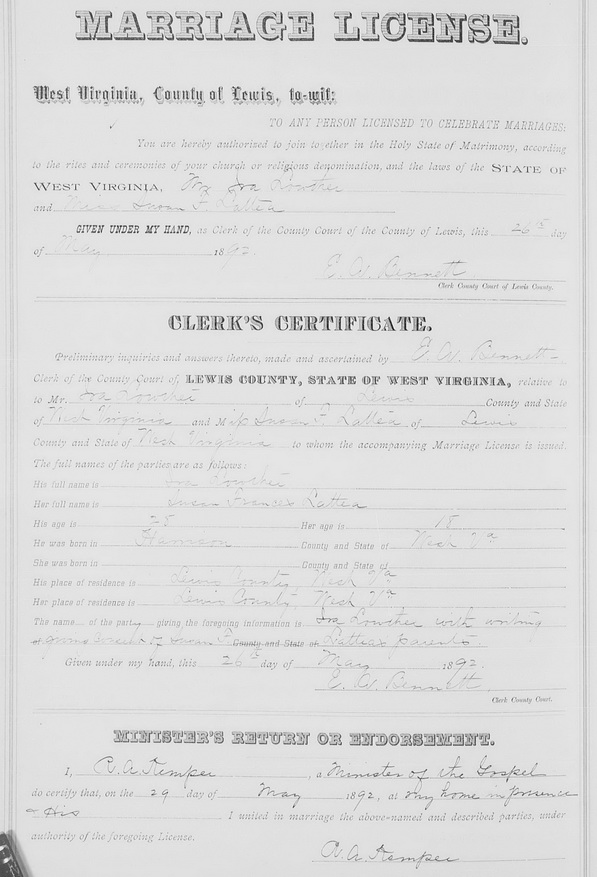 MARRIAGE LICENSE.
West Virginia, County of Lewis, to-wit:
TO ANY PERSON LICENSED TO CELEBRATE MARRIAGES:
You are hereby authorized to join together in the Holy State of Matrimony, according
to the rites and ceremonies of your church or religious denomination, and the laws of the STATE OF
WEST VIRGINIA, Mr Ira Lowther
and Miss Susan F. Lattea
GIVEN UNDER MY HAND, as Clerk of the County Court of the County of Lewis, this 26th day
of May 1892.
E. W. Bennett
Clerk County Court of Lewis County.
CLERK'S CERTIFICATE.
Preliminary inquiries and answers thereto, made and ascertained by E. W. Bennett
Clerk of the County Court of, LEWIS COUNTY, STATE OF WEST VIRGINIA, relative to
to Mr. Ira Lowther of Lewis County and State
of West Virginia and Miss Susan F. Lattea of Lewis
County and State of West Virginia to whom the accompanying Marriage License is issued.
The full names of the parties are as follows:
His full name is Ira Lowther
Her full name is Susan Frances Lattea
His age is 28 Her age is 18
He was born in Harrison County and State of West Va
She was born in County and State of
His place of residence is Lewis County, West Va
Her place of residence is Lewis County, West Va
The name of the party giving the foregoing information is Ira Lowther with writing
giving consent of Susan F. County and State of Lattea's parents.
Given under my hand, this 26th day of May 1892.
E. W. Bennett
Clerk County Court.
MINISTER'S RETURN OR ENDORSEMENT.
I, R. A. Kemper, a Minister of the Gospel
do certify that, on the 29 day of May 1892, at my home in presence
I united in marriage the above-named and described parties, under
authority of the foregoing License.
R. A. Kemper